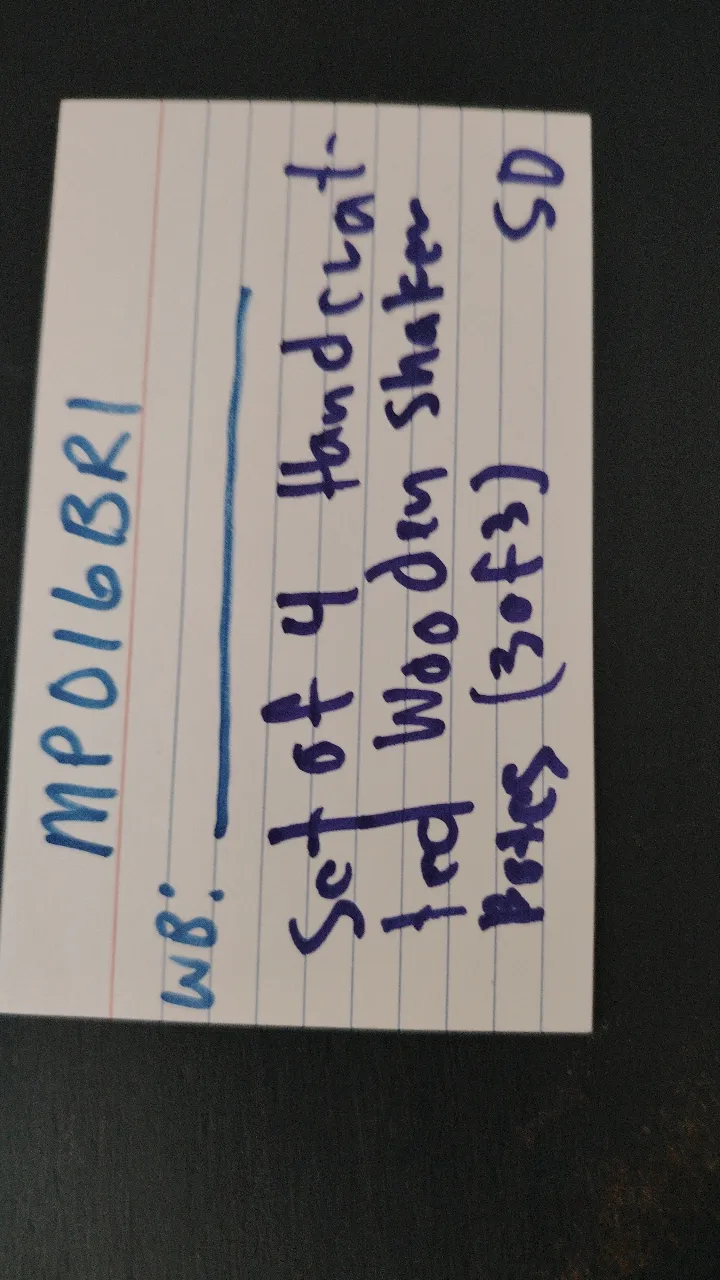 MP016BR1
WB: ____________
Set of 4 Handcraf-
ted Wooden Shaker
Boxes (3 of 3) SD